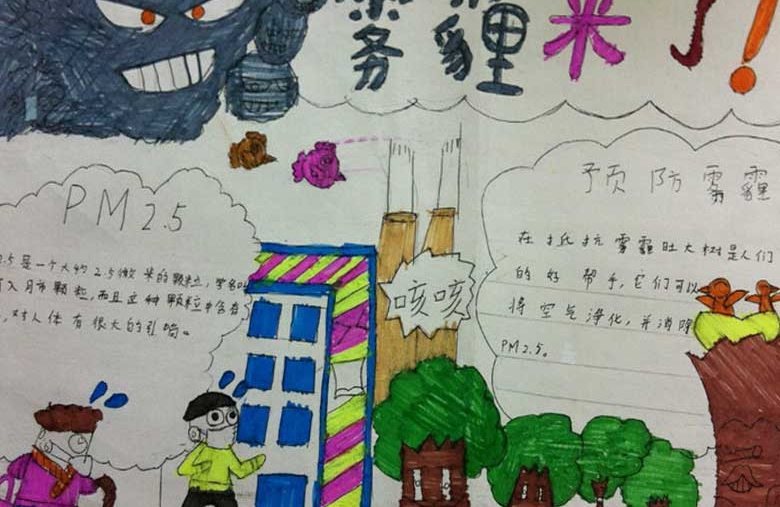 雾霾来了!
PM2.5
2.5是一个大约2.5微米的颗粒,学名叫
入肺颗粒,而且这种颗粒中含有
,对人体有很大的引响。
咳咳
预防雾霾
在抵抗雾霾时大树是人们
的好帮手,它们可以
将空气净化,并消除
PM2.5。